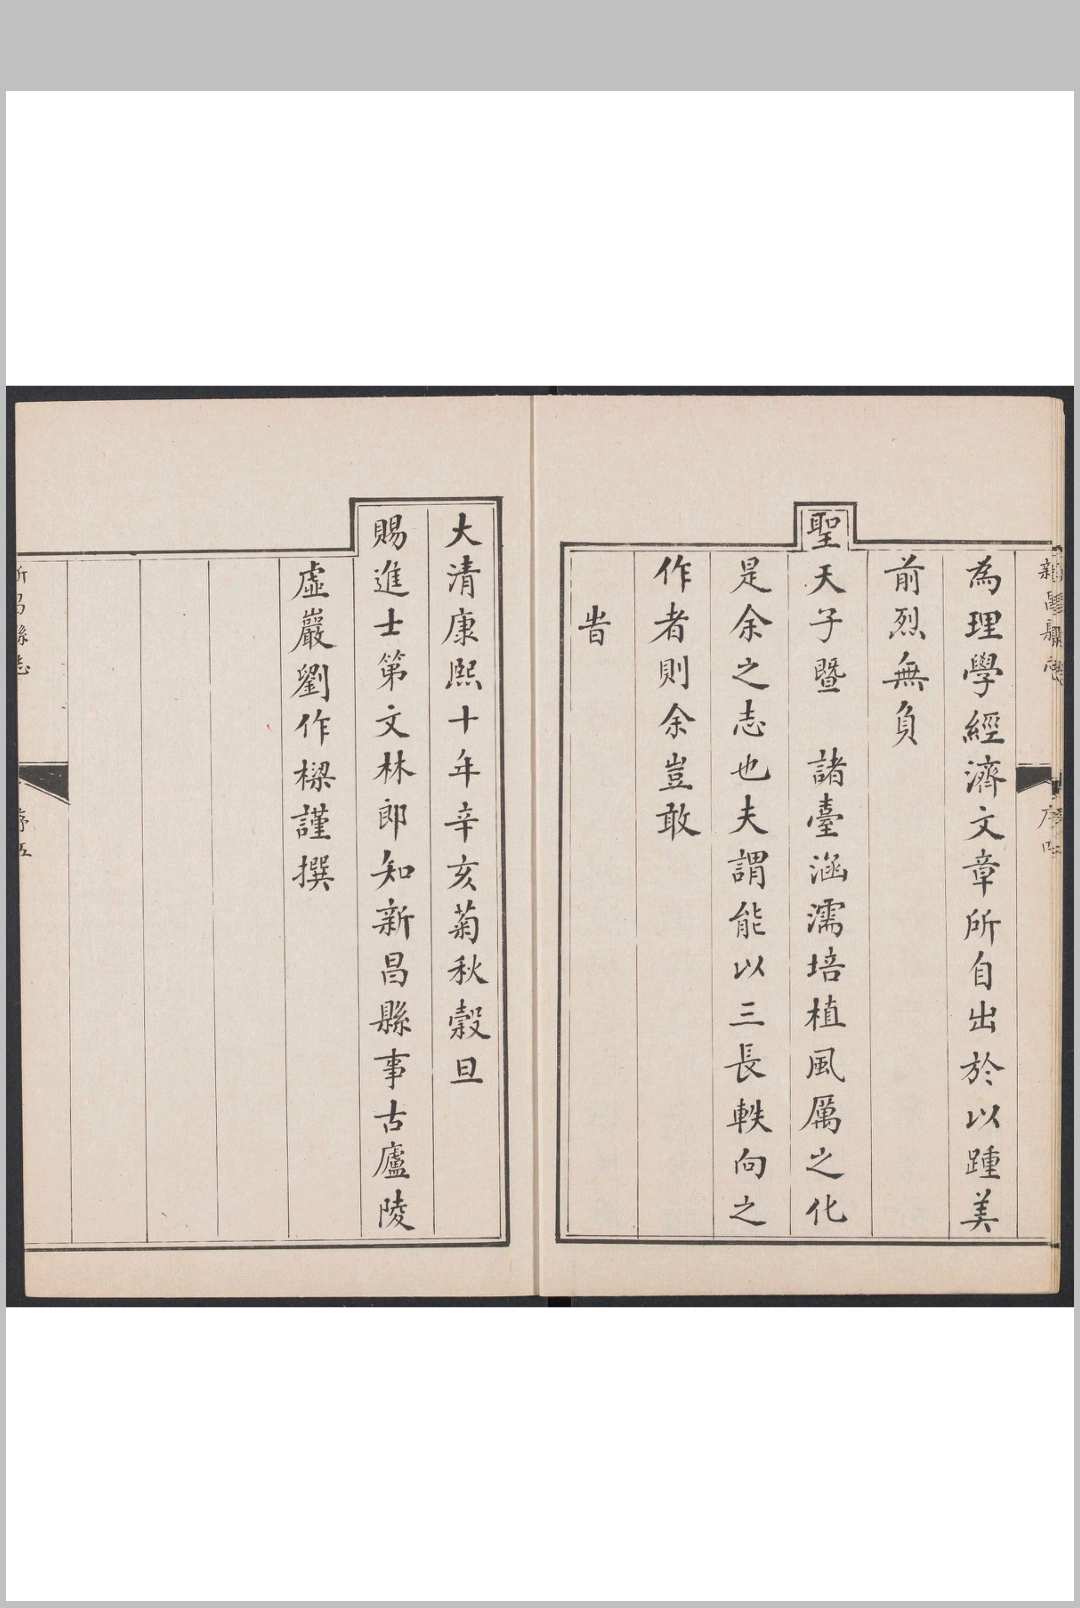 新昌縣志 序四
為理學經濟文章所自出於以踵美
前烈無負
聖天子暨 諸臺涵濡培植風厲之化
是余之志也夫謂能以三長軼向之
作者則余豈敢
旹
大清康熙十年辛亥菊秋穀旦
賜進士第文林郎知新昌縣事古廬陵
虛巖劉作樑謹撰
新昌縣志 序五